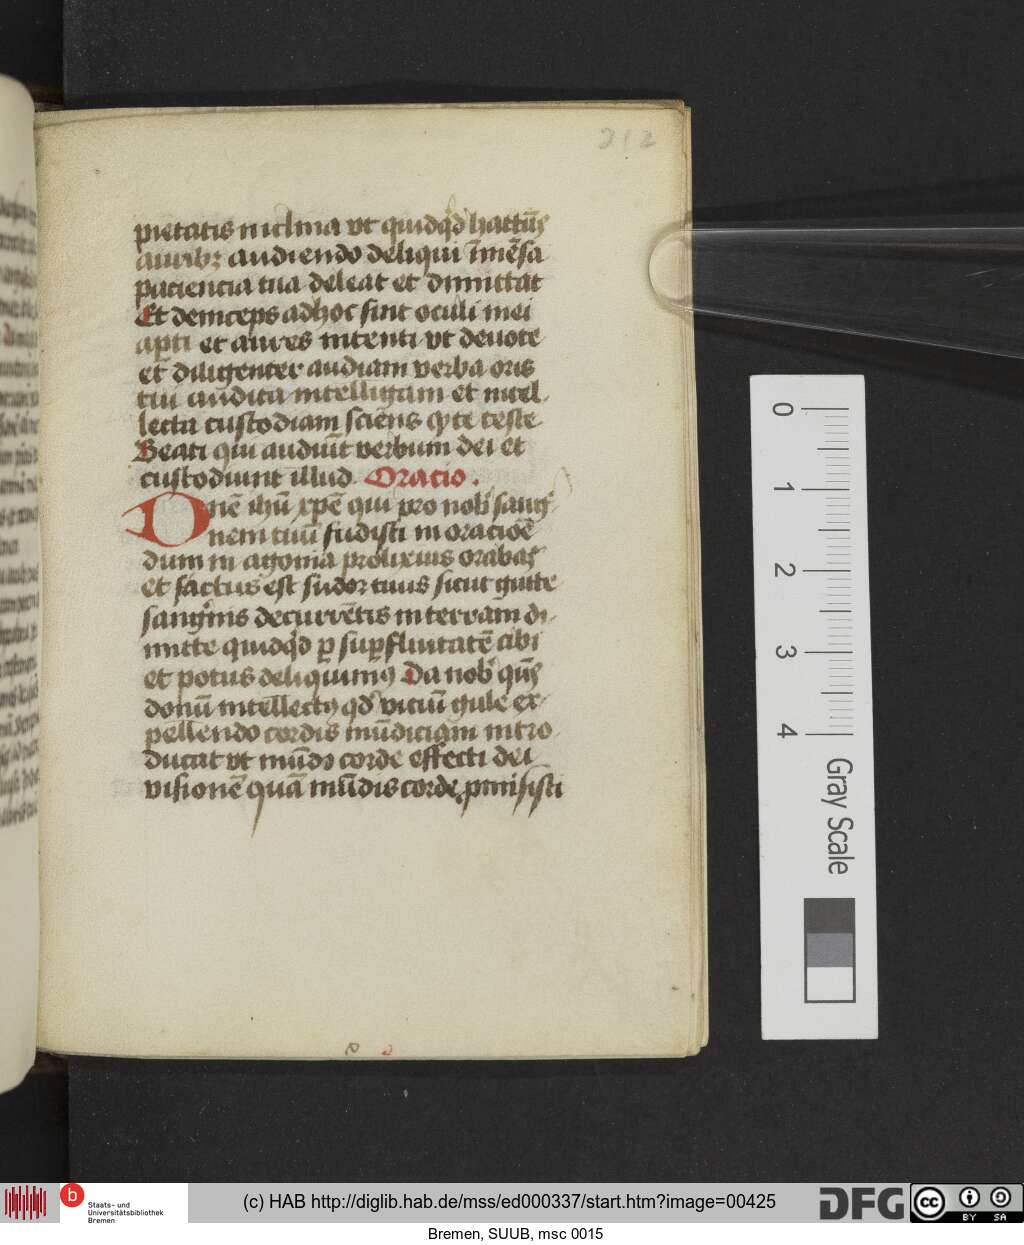 212
pietatis inclina vt quidqd hactūs
aurib; audiendo deliqui īmēsa
paciencia tua deleat et dimittat
Et deinceps adhoc sint oculi mei
apti et aures intenti vt deuote
et diligenter audiam verba oris
tui audita intelligam et intel
lecta custodiam sciens te teste
Beati qui audiūt verbum dei et
custodiunt illud. Oracio.
Dnē ihū xpē qui pro nob sang
nem tuū fudisti in oracioē
dum in agonia prolixius orabas
et factus est sudor tuus sicut gutte
sangnis decurrētis in terram di
mitte quidqd p supfluitatē cibi
et potus deliquimꝰ Da nob qūs
donū intellectꝰ qd viciū gule ex
pellendo cordis mūdiciam intro
ducat vt mūdo corde effecti dei
visionē quā mūdis corde pmisisti
0
1
2
3
4
Gray Scale
b
Staats- und
Universitätsbibliothek
Bremen
(c) HAB http://diglib.hab.de/mss/ed000337/start.htm?image=00425
DFG
cc
BY SA
Bremen, SUUB, msc 0015